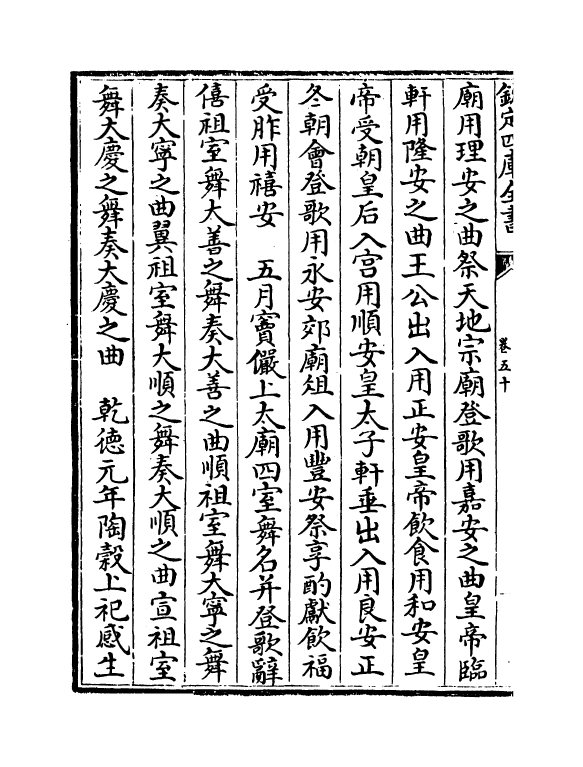 欽定四庫全書
卷五十
廟用理安之曲祭天地宗廟登歌用嘉安之曲皇帝臨
軒用隆安之曲王公出入用正安皇帝飲食用和安皇
帝受朝皇后入宫用順安皇太子軒垂出入用良安正
冬朝會登歌用永安郊廟俎入用豐安祭享酌獻飲福
受胙用禧安　五月竇儼上太廟四室舞名并登歌辭
僖祖室舞大善之舞奏大善之曲順祖室舞大寧之舞
奏大寧之曲翼祖室舞大順之舞奏大順之曲宣祖室
舞大慶之舞奏大慶之曲　乾德元年陶穀上祀感生